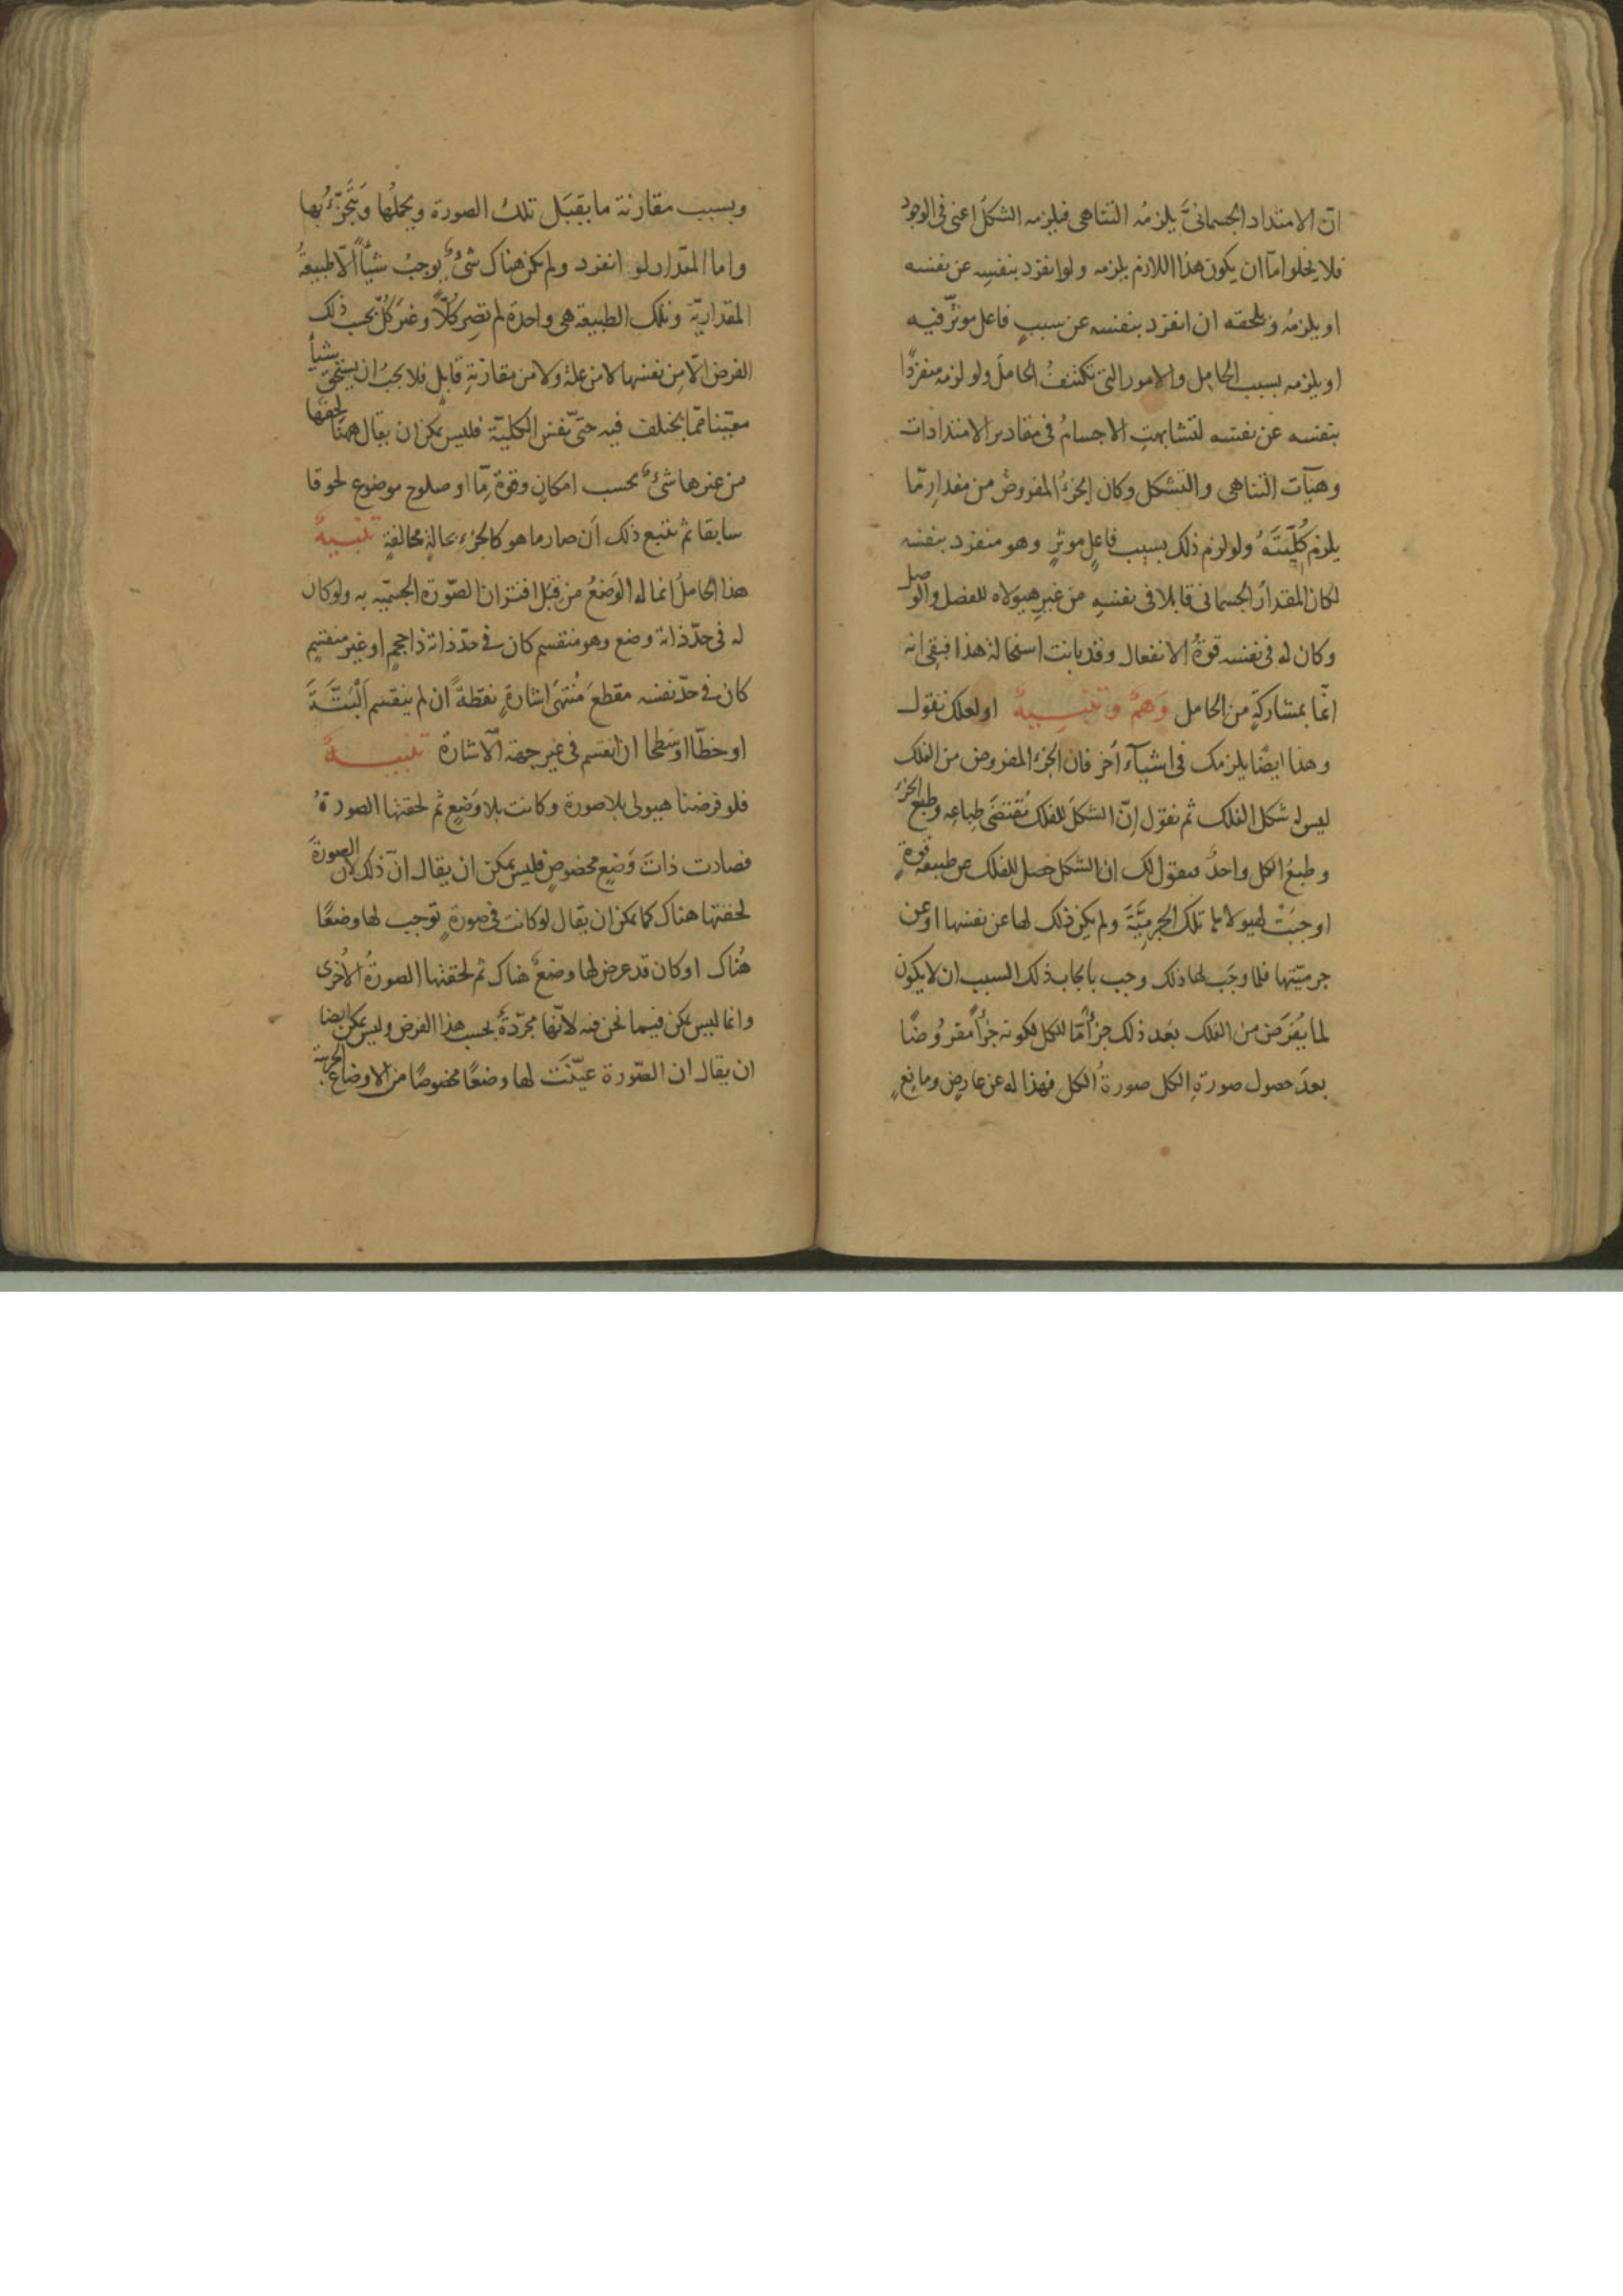 ان الامتداد الجسمانىَّ يلزمُه التناهى فيلزمه الشكلُ اعنى فى الوجود
فلا يخلوا امّا ان يكون هذا اللازم يلزمه ولو انفرد بنفسِه عن نفسه
او يلزمُه ويلحقه ان انفرد بنفسه عن سببٍ فاعلٍ موثّر فيه
او يلزمه بسبب الحامِل والامور التى تكتنفُ الحاملَ ولو لزمه منفردًا
بنفسه عن نفسه لتشابهتِ الاجسامُ فى مقادير الامتدادات
وهيآت التناهى والتشكل وكان الجزءُ المفروضُ من مقدارٍ مّا
يلزم كُلّيَّتَهُ ولو لزم ذلك بسبب فاعلٍ موثرٍ وهو منفرد بنفسه
لكان المقدارُ الجسمانى قابلا فى نفسِهِ من غيرِ هيوَلاه للفصل والوصل
وكان له فى نفسه قوةُ الانفعال وقد بانت استحالة هذا فبقى انه
انّما بمشاركةٍ من الحامل وَهمٌ وتنبِيهٌ او لعلك تقول
وهذا ايضًا يلزمك فى اشيآء اُخر فان الجزءَ المفروض من الفلك
ليس له شكل الفلك ثم تقول اِنّ الشكلَ للفلك مُقتضَى طباعِه وطبع الجزءِ
وطبعُ الكل واحدٌ فنقول لك ان الشكل حصل للفلك عن طبيعة قوةٍ
اوجبَتْ لهيولاه تلك الجِرمِيَّةَ ولم يكن ذلك لها عن نفسها او عن
جرميّتها فلما وجَب لها ذلك وجب بايجاب ذلك السبب ان لا يكون
لما يُفرَض من الفلك بعَد ذلك جزأً مّا للكل لكونه جزأً مفرُوضًا
بعدَ حصول صورةِ الكل صورةُ الكل فهذا له عن عارضٍ ومانعٍ
وبسبب مقارنة ما يقبَل تلكُ الصورة ويحملُها ويَتَجزّءُ بها
واما المقدار لو انفرد ولم يكن هناك شىءٌ يوجبُ شيأً الّا طبيعةُ
المقداريّة وتلك الطبيعة هى واحدة لم تصِر كُلًّا وغيرَ كُلّ بحسب ذلك
الفرض الّا مِن نفسها لا من علة ولا من مقارنةِ قابلٍ فلا يجبُ ان يستحق شيأ
معيّنا ممّا يختلف فيه حتّى نفسِ الكليّة فليس يمكن ان يقال ههنا لحقها
من غيرها شىءٌ بحسب امكانٍ وقوةٍ مّا او صلوح موضوع لحوقا
سابقا ثم يتبع ذلك اَن صار ما هو كالجُزءِ بحالةٍ مخالفةٍ تنبيهٌ
هذا الحاملُ انما له الوَضعُ من قِبَل اقتران الصّورة الجسميّه به ولو كان
له فى حدّ ذاته وضع وهو منقسم كان فى حدّ ذاته ذا حجمٍ او غير منقسِمٍ
كان فى حدّ نفسه مقطعَ مُنتهَى اشارةٍ نقطةً ان لم ينقسم اَلْبتّةَ
او خطّا او سطحا ان انقسم فى غير جهة الاشارة تنبيهٌ
فلو فرضنا هيولى بلا صورة وكانت بلا وَضعٍ ثم لحقتها الصورةُ
فصارت ذاتَ وَضعٍ مخصوصٍ فليس يمكن ان يقال انّ ذلك لان الصورةَ
لحقتها هناك كما يمكن ان يقال لو كانت فى صورةٍ توجب لها وضعًا
هُناك او كان قد عرض لها وضعٌ هناك ثم لحقتها الصورةُ الاُخرى
وانما ليس يمكن فيما نحن فيه لانّها مجرّدةٌ بحسب هذا الفرض وليس يمكن ايضا
ان يقال ان الصّورة عيّنَت لها وضعًا مخصوصًا من الاوضاع الجزئية